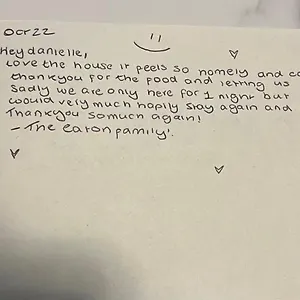 Oct 22
Hey danielle,
Love the house it feels so homely and
thankyou for the food and letting us
sadly we are only here for 1 night but
would very much happily stay again and
Thankyou somuch again!
- The eaton family!